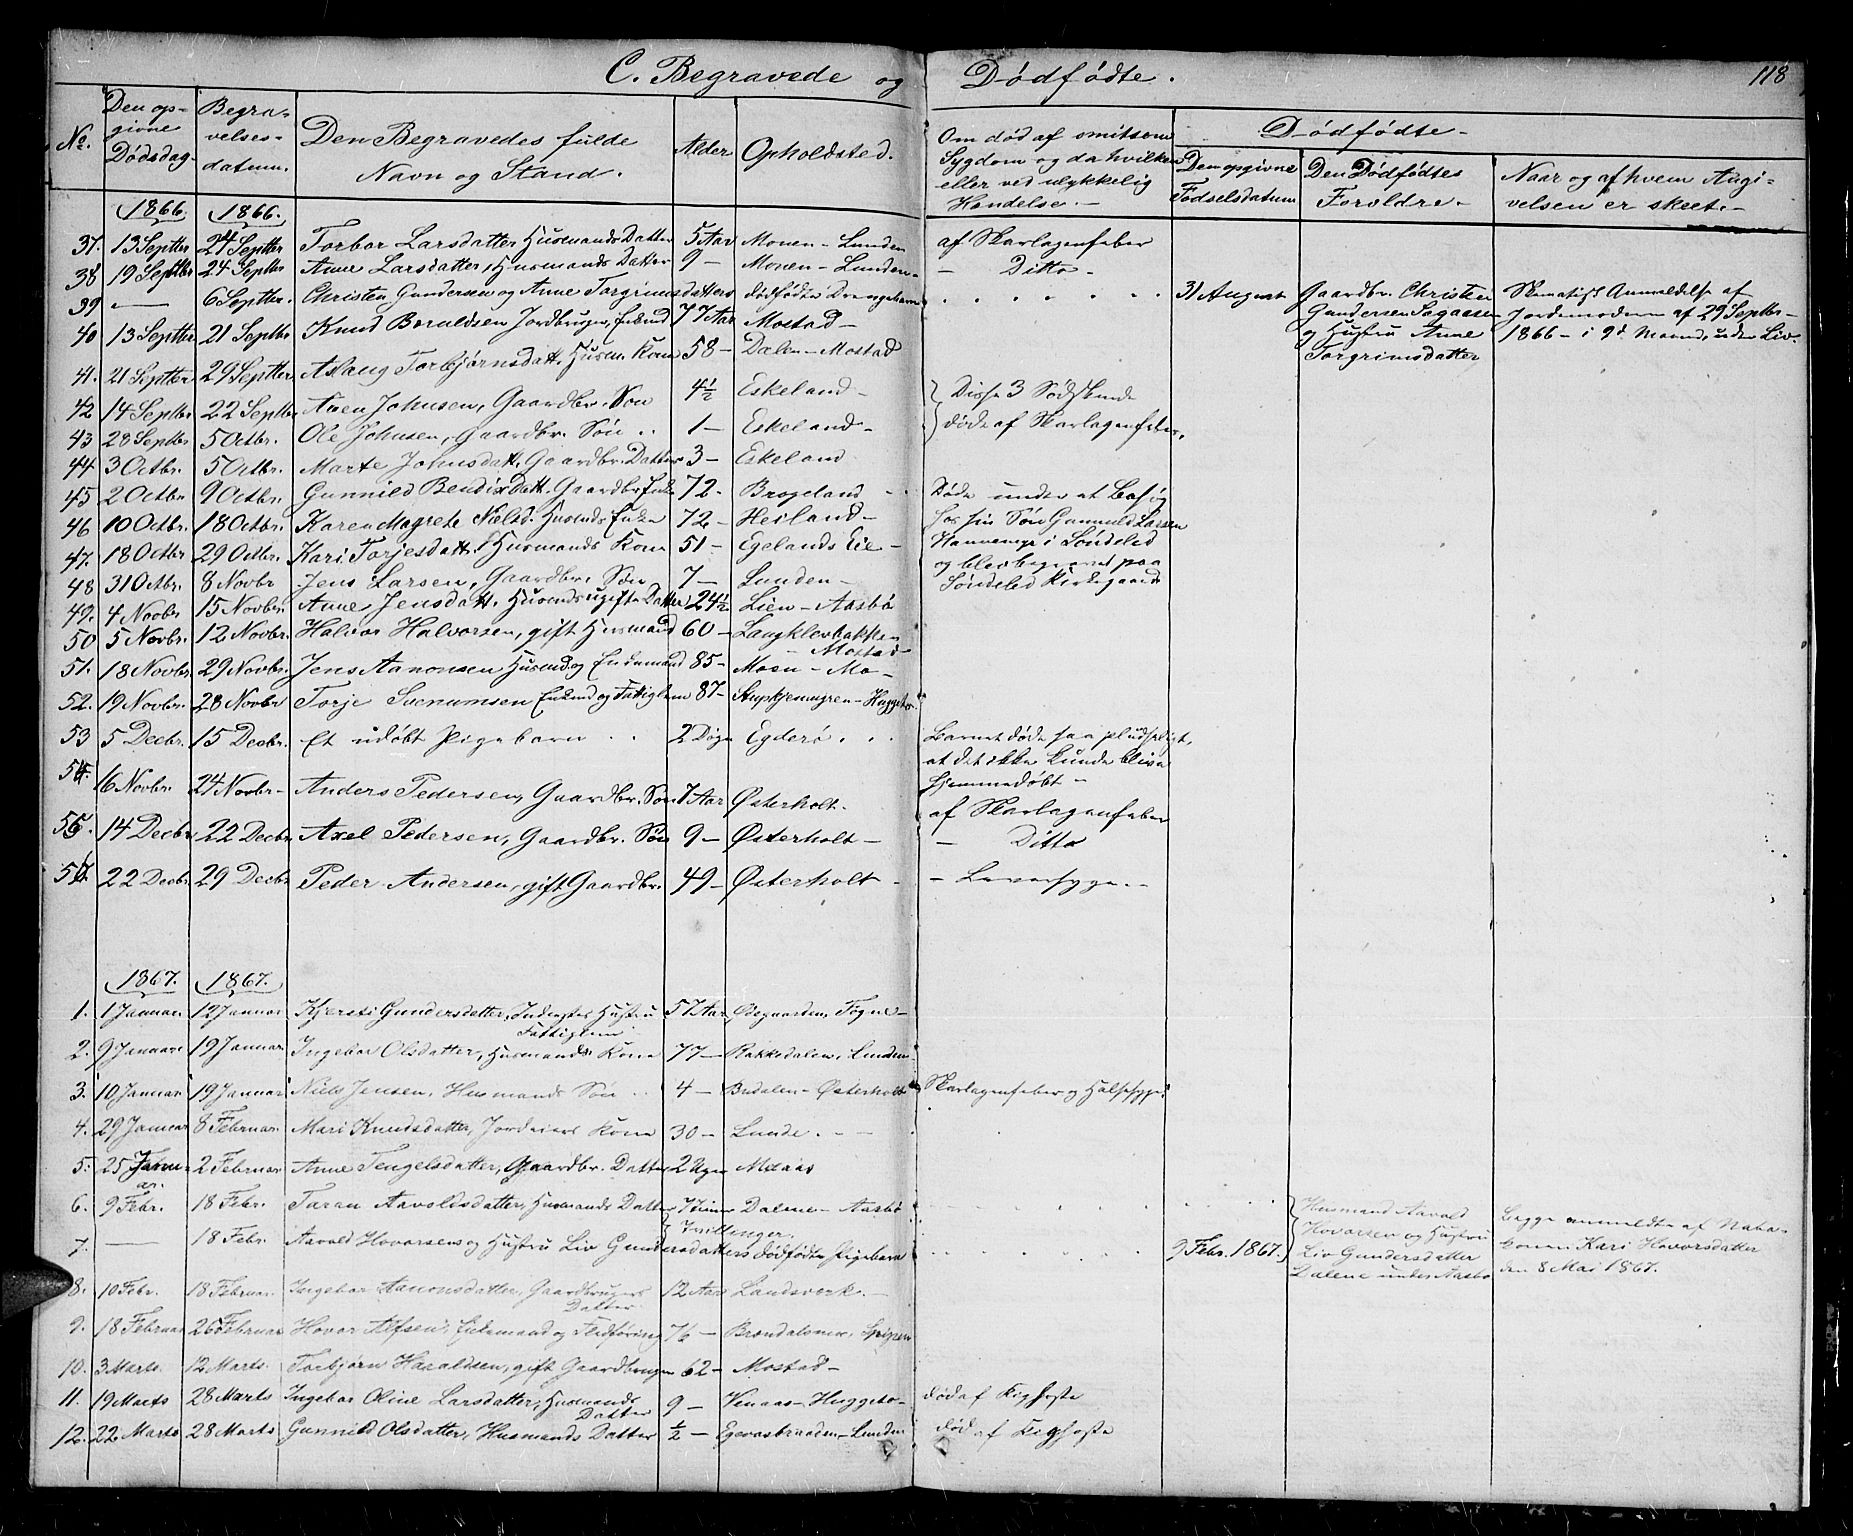 C. Begravede og Dødfødte. 118
No. Den opgivne Dødsdag Begravelsesdatum. Den Begravedes fulde Navn og Stand. Alder Opholdsted. Om død af smitsom Sygdom og da hvilken eller ved ulykkelig Hændelse.- Dødfødte- Den opgivne Fødselsdatum Den Dødfødtes Forældre.- Naar og af hvem Angivelsen er skeet.-
1866. 1866.
37. 13 Septbr 24 Septbr Torbor Larsdatter Husmands Datter 5 Aar Monen-Lunden af Skarlagensfeber
38 19 Septbr 24 Septbr Anne Larsdatter, Husmands Datter 9- Monen-Lunden- - Ditto-
39 — 6 Septbr. Christen Gundersen og Anne Torgrimsdatters dødfødte Drengebarn 31 August Gaardbr. Christen
Gundersen
og Hustru Anne
Torgrimsdatter
Skematisk Anmeldelse af
Jordemoderen af 29 Septbr-
1866- i 9d Maaned, under Liv.
40 13 Septbr 21 Septbr Knud Boraldsen Jordbruger, Enkemd 77 Aar Mostad-
41. 21 Septbr 29 Septbr Aslaug Torbjørnsdatt. Husm. Kone 58- Dalen-Mostad
42 14 Septbr 22 Septbr Aven Johnsen, Gaardbr. Søn 4½ Eskeland- Disse 3 Sødskende
43 28 Septbr 5 Octbr. Ole Johnsen, Gaardbr. Søn .. 1- Eskeland- døde af Skarlagensfeber.
44 3 Octbr. 5 Octbr. Marte Johnsdatt. Gaardbr. Datter 3- Eskeland
45 2 Octbr 9 Octbr. Gunnild BendixDatt. Gaardbr Enke 72. Brogeland Døde under et Besøg
46 10 Octbr. 18 Octbr. Karen Magrete Nielsd. Husmds Enke 72- Heiland- hos sin Søn Gunnuld Larsen
47. 18 Octbr 29 Octbr. Kari Torjesdatt. Husmands Kone 51- Egelands Eie- i Søndeled
48 31 Octbr. 8 Novbr Jens Larsen, Gaardbr. Søn 7- Lunden- og blev begravet paa
Søndeled Kirkegaard
49. 4 Novbr 15 Novbr. Anne Jensdatt. Husmds ugifte Datter 24½ Lien-Aasbø
50 5 Novbr. 12 Novbr. Halvor Halvorsen, gift Husmand 60- Langklevbakken
- Mostad-
51. 18 Novbr. 29 Novbr. Jens Aanonsen Husmd og Enkemand 85- Moen-Mo-
52. 19 Novbr. 28 Novbr Torje Enkemd og Fattiglem 87- -Huggeto.
53 5 Decbr. 15 Decbr. Et udøbt Pigebarn .. 2 Døgn Egderø. Barnet døde saa pludseligt,
at det ikke kunde blive
hjemmedøbt-
54. 16 Novbr. 24 Novbr- Anders Pedersen, Gaardbr. Søn 7 Aar Østerholt- af Skarlagensfeber
55. 14 Decbr 22 Decbr Axel Pedersen, Gaardbr. Søn 9- Østerholt- - Ditto
56. 22 Decbr. 29 Decbr Peder Andersen, gift Gaardbr. 49- Østerholt- - Leversyge.-
1867. 1867.
1. 1 Januar. 12 Januar Kjersti Gundersdatter, Indergsts Hustru 57 Aar Øvegaarden, Fogne-
Fattiglem
2. 9 Januar 19 Januar. Ingebor Olsdatter, Husmands Kone 77- Rakkedalen, Lunden
3. 10 Januar 19 Januar Niels Jensen, Husmands Søn .. 4- Budalen-Østerholt Skarlagensfeber og Halssyge.
4. 29 Januar 8 Februar. Mari Knudsdatter, Jordeiers Kone 30- Lunde.
5. 25 Januar. 2 Februar Anne Tengelsdatter, Gaardbr. Datter 2 Uger Mdaas
6. 9 Febr. 18 Febr. Taran Aavoldsdatter, Husmands Datter 7 Timer Dalene-Aasbø
Tvillinger.
7. — 18 Febr. Aavold Hovorsens og Hustru Liv Gundersdatters dødfødte Pigebarn 9 Febr. 1867. Husmand Aavold
Hovorsen og Hustru
Liv Gundersdatter
Dalene under Aasbø
Begge anmeldte af Nabokonen Kari Hovorsdatter
den 8 Mai 1867.
8. 10 Febr. 18 Februar. Ingebor Aanonsdatter, Gaardbrugers 12 Aar Landsverk.-
Datter
9. 18 Februar 26 Februar Hovor Alfsen, Enkemand og Fledføring 76-
10. 3 Marts. 12 Marts. Torbjørn Haraldsen, gift Gaardbruger 62- Mostad-
11. 19 Marts 28 Marts Ingebor Oline Larsdatter, Husmands 9- Venaas-Huggeto- død af Kighoste
Datter
12. 22 Marts 28 Marts Gunnild Olsdatter, Husmands Datter ½- -Lunden død af Kighoste